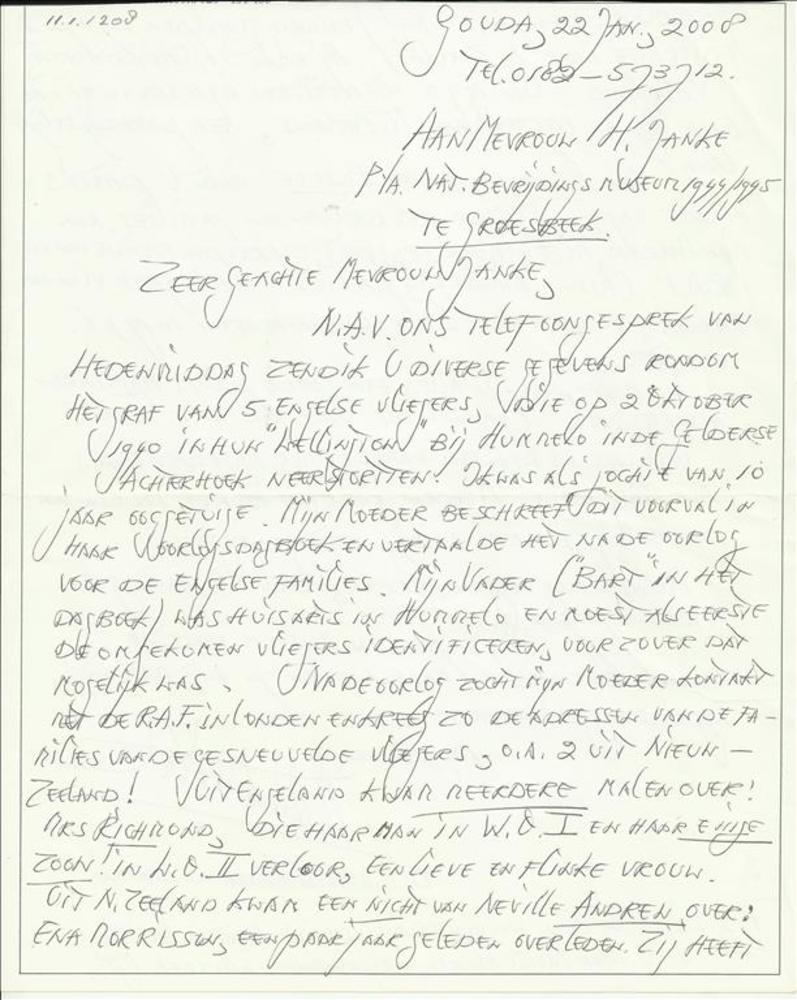 11.1.1208
GOUDA, 22 JAN., 2008
TEL. 0182-573712.
AAN MEVROUW H. JANKE
P/A. NAT. BEVRIJDINGSMUSEUM 1944/1945
TE GROESBEEK.
ZEER GEACHTE MEVROUW JANKE,
N.A.V. ONS TELEFOONGESPREK VAN
HEDENMIDDAG ZEND IK U DIVERSE GEGEVENS RONDOM
HET GRAF VAN 5 ENGELSE VLIEGERS, DIE OP 2 OKTOBER
1940 IN HUN "WELLINGTON" BIJ HUMMELO IN DE GELDERSE
ACHTERHOEK NEERSTORTTEN. IK WAS ALS JOCHIE VAN 10
JAAR OOGGETUIGE. MIJN MOEDER BESCHREEF DIT VOORVAL IN
HAAR OORLOGSDAGBOEK EN VERTAALDE HET NA DE OORLOG
VOOR DE ENGELSE FAMILIES. MIJN VADER ("BART" IN HET
DAGBOEK) WAS HUISARTS IN HUMMELO EN MOEST ALS EERSTE
DE OMGEKOMEN VLIEGERS IDENTIFICEREN, VOOR ZOVER DAT
MOGELIJK WAS. NA DE OORLOG ZOCHT MIJN MOEDER KONTAKT
MET DE R.A.F. IN LONDEN EN KREEG ZO DE ADRESSEN VAN DE FA-
MILIES VAN DE GESNEUVELDE VLIEGERS, O.A. 2 UIT NIEUW-
ZEELAND! UIT ENGELAND KWAM MEERDERE MALEN OVER:
MRS RICHMOND, DIE HAAR MAN IN W.O. I EN HAAR ENIGE
ZOON! IN W.O. II VERLOOR, EEN LIEVE EN FLINKE VROUW.
UIT N. ZEELAND KWAM EEN NICHT VAN NEVILLE ANDREN OVER:
ENA MORRISSON, EEN PAAR JAAR GELEDEN OVERLEDEN. ZIJ HEEFT